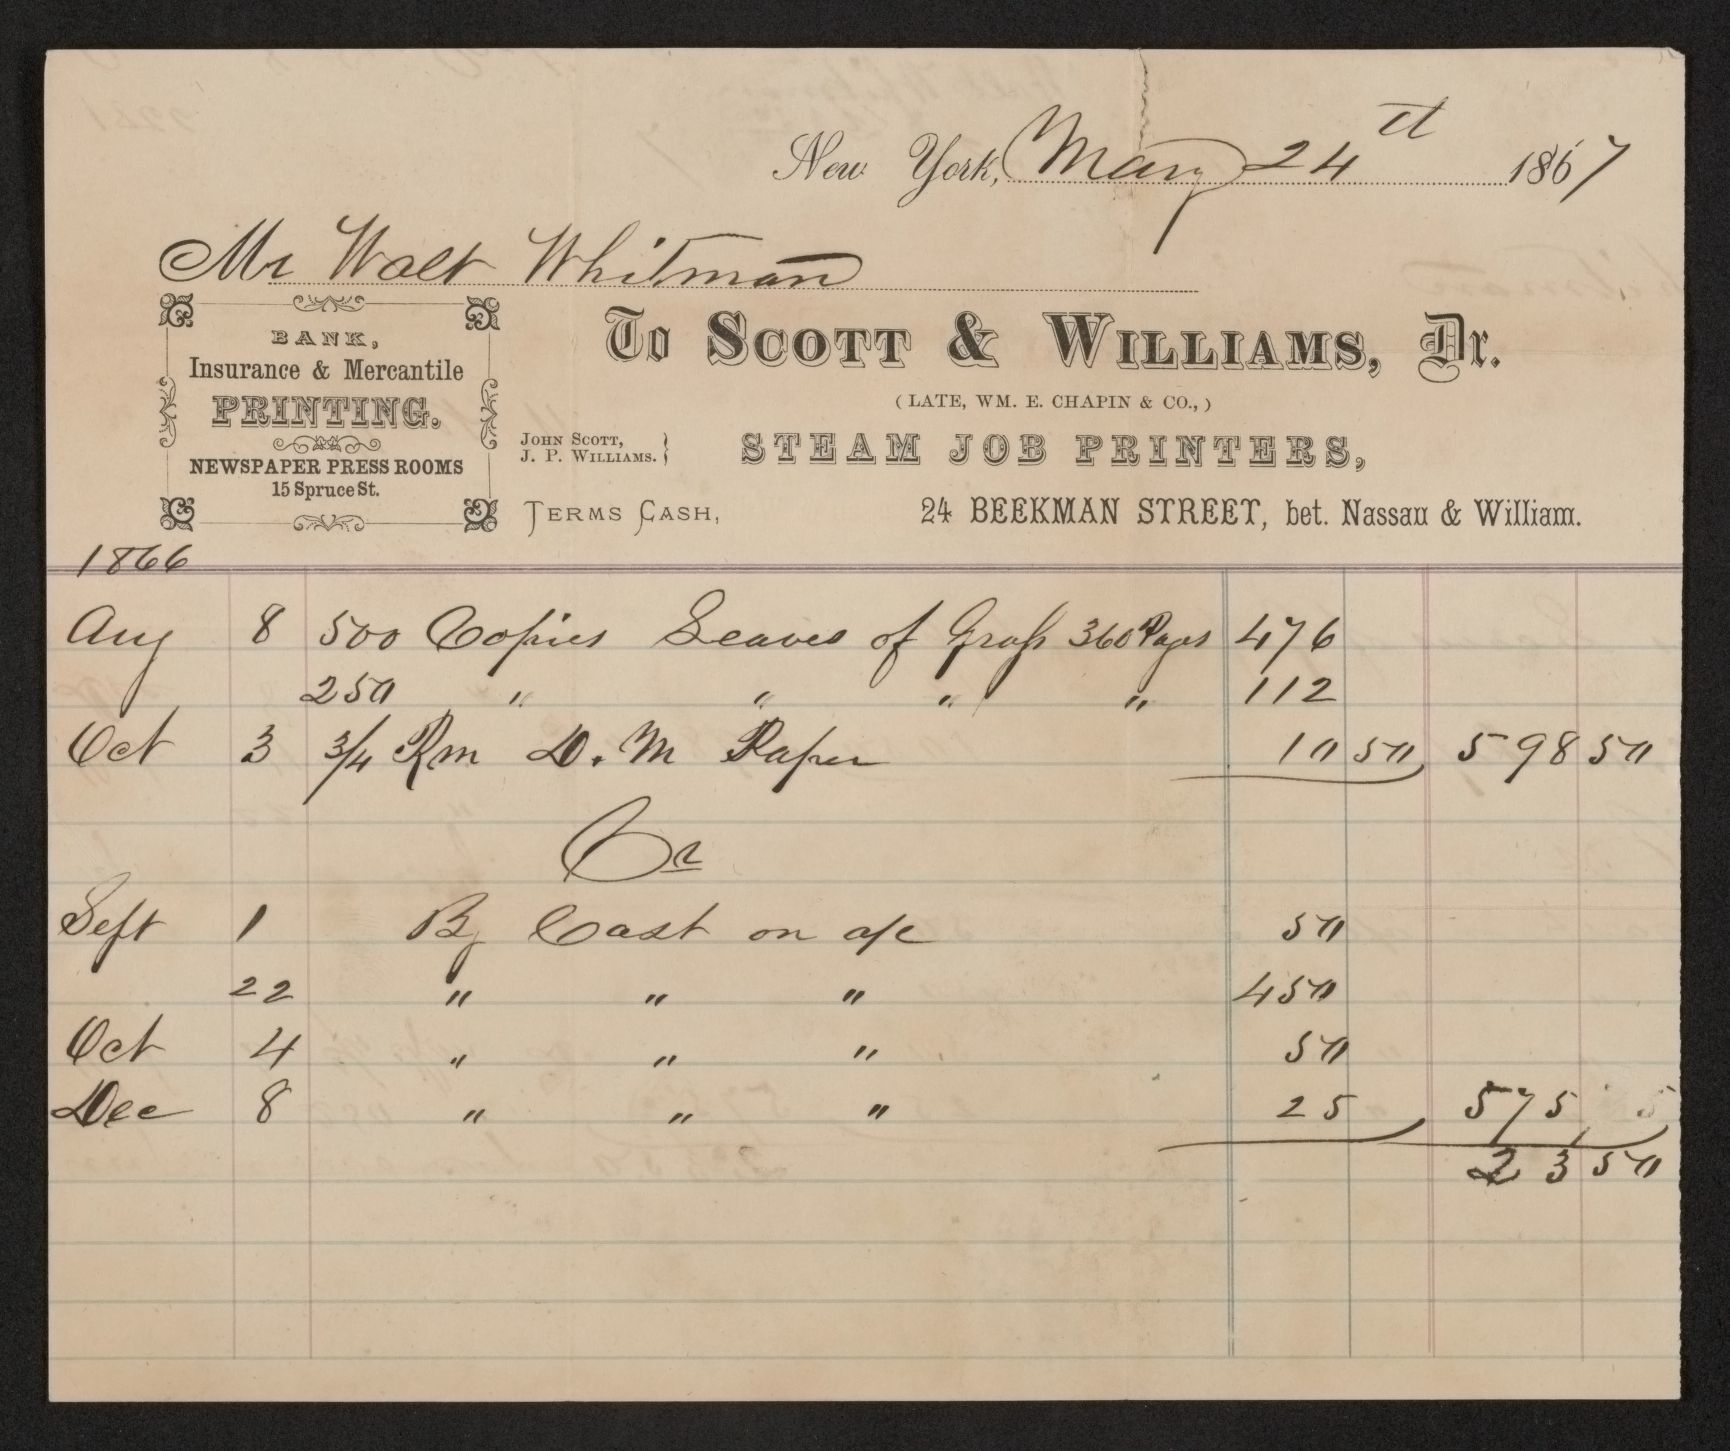 New York, May 24th 1867
Mr Walt Whitman
BANK,
Insurance & Mercantile
PRINTING.
NEWSPAPER PRESS ROOMS
15 Spruce St.
To SCOTT & WILLIAMS, Dr.
(LATE, WM. E. CHAPIN & CO.,)
JOHN SCOTT,
J. P. WILLIAMS.
STEAM JOB PRINTERS,
TERMS CASH,
24 BEEKMAN STREET, bet. Nassau & William.
1866
Aug 8 500 Copies Leaves of Grass 360 Pages 476
250 " " " " 112
Oct 3 3/4 Rm D. M Paper 10 50 598 50
Cr
Sept 1 By Cash on a/c 50
22 " " " 450
Oct 4 " " " 50
Dec 8 " " " 25 575
23 50